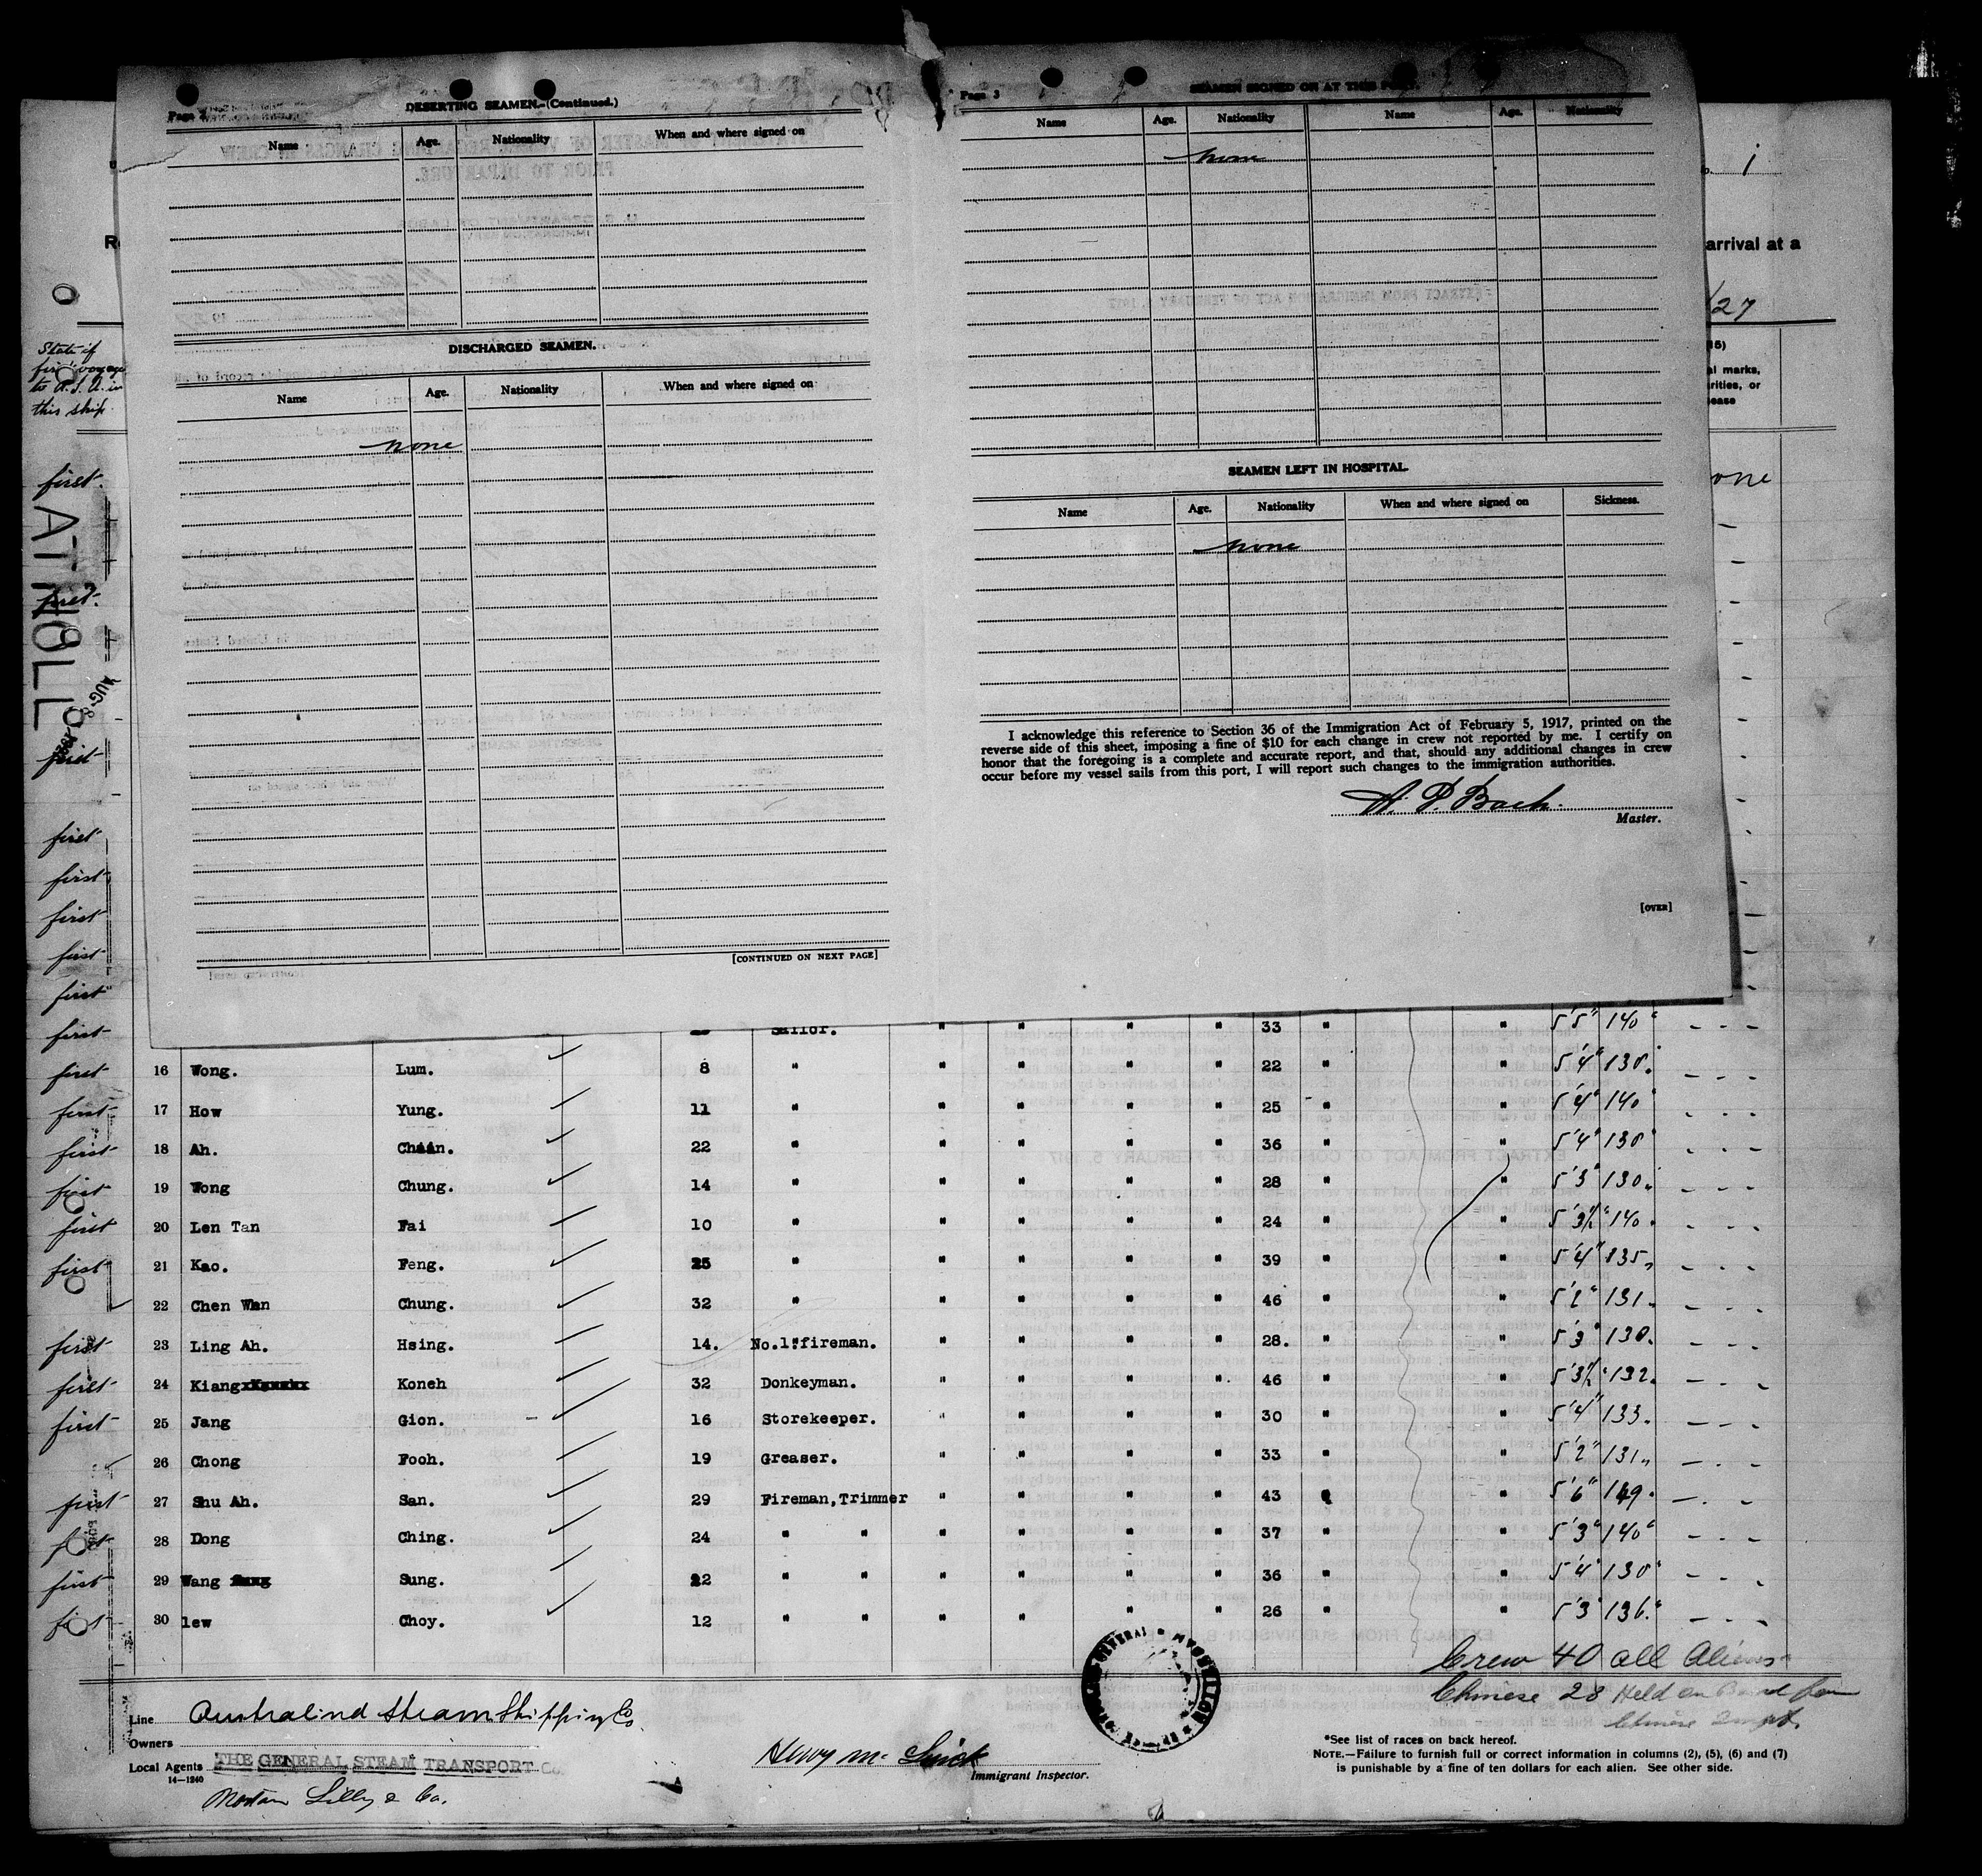 Page 2
DESERTING SEAMEN.—(Continued.)
Name Age. Nationality When and where signed on
DISCHARGED SEAMEN.
Name Age. Nationality When and where signed on
none
[CONTINUED ON NEXT PAGE]
Page 3
SEAMEN SIGNED ON AT THIS PORT.
Name Age. Nationality Name Age. Nationality
none
SEAMEN LEFT IN HOSPITAL.
Name Age. Nationality When and where signed on Sickness.
none
I acknowledge this reference to Section 36 of the Immigration Act of February 5, 1917, printed on the
reverse side of this sheet, imposing a fine of $10 for each change in crew not reported by me. I certify on
honor that the foregoing is a complete and accurate report, and that, should any additional changes in crew
occur before my vessel sails from this port, I will report such changes to the immigration authorities.
A. P. Bach.
Master.
[OVER]
1
arrival at a
/27
al marks,
rities, or
ease
one
State if
first voyage
to U.S.A. in
this ship.
ATHOLL
AUG 8
first
first
first
first
first
first
first
first
first Sailor. " " " " 33 " " 5'5" 140"
first 16 Wong. Lum. 8 " " " " " 22 " " 5'4" 130"
first 17 How Yung. 11 " " " " " 25 " " 5'4" 140"
first 18 Ah. Chaan. 22 " " " " " 36 " " 5'4" 130"
first 19 Wong Chung. 14 " " " " " 28 " " 5'3" 130"
first 20 Len Tan Fai 10 " " " " " 24 " " 5'3½" 140"
first 21 Kao. Feng. 25 " " " " " 39 " " 5'4" 135"
22 Chen Wan Chung. 32 " " " " " 46 " " 5'2" 131"
first 23 Ling Ah. Hsing. 14. No.1.fireman. " " " " 28. " " 5'3" 130"
first 24 Kiang Koneh 32 Donkeyman. " " " " 46 " " 5'3½" 132"
first 25 Jang Gion. 16 Storekeeper. " " " " 30 " " 5'4" 133"
26 Chong Fooh. 19 Greaser. " " " " 33 " " 5'2" 131"
first 27 Shu Ah. San. 29 Fireman,Trimmer " " " " 43 " " 5'6" 149"
first 28 Dong Ching. 24 " " " " " " 37 " " 5'3" 140"
first 29 Wang Sung. 22 " " " " " " 36 " " 5'4" 130"
first 30 lew Choy. 12 " " " " " " 26 " " 5'3" 136"
Crew 40 all Aliens
Chinese 28 Held on Board
Chinese
Line Australind Steam Shipping Co.
Owners
Local Agents THE GENERAL STEAM TRANSPORT Co.
14—1240
Lilly & Co.
Immigrant Inspector.
*See list of races on back hereof.
NOTE.—Failure to furnish full or correct information in columns (2), (5), (6) and (7)
is punishable by a fine of ten dollars for each alien. See other side.